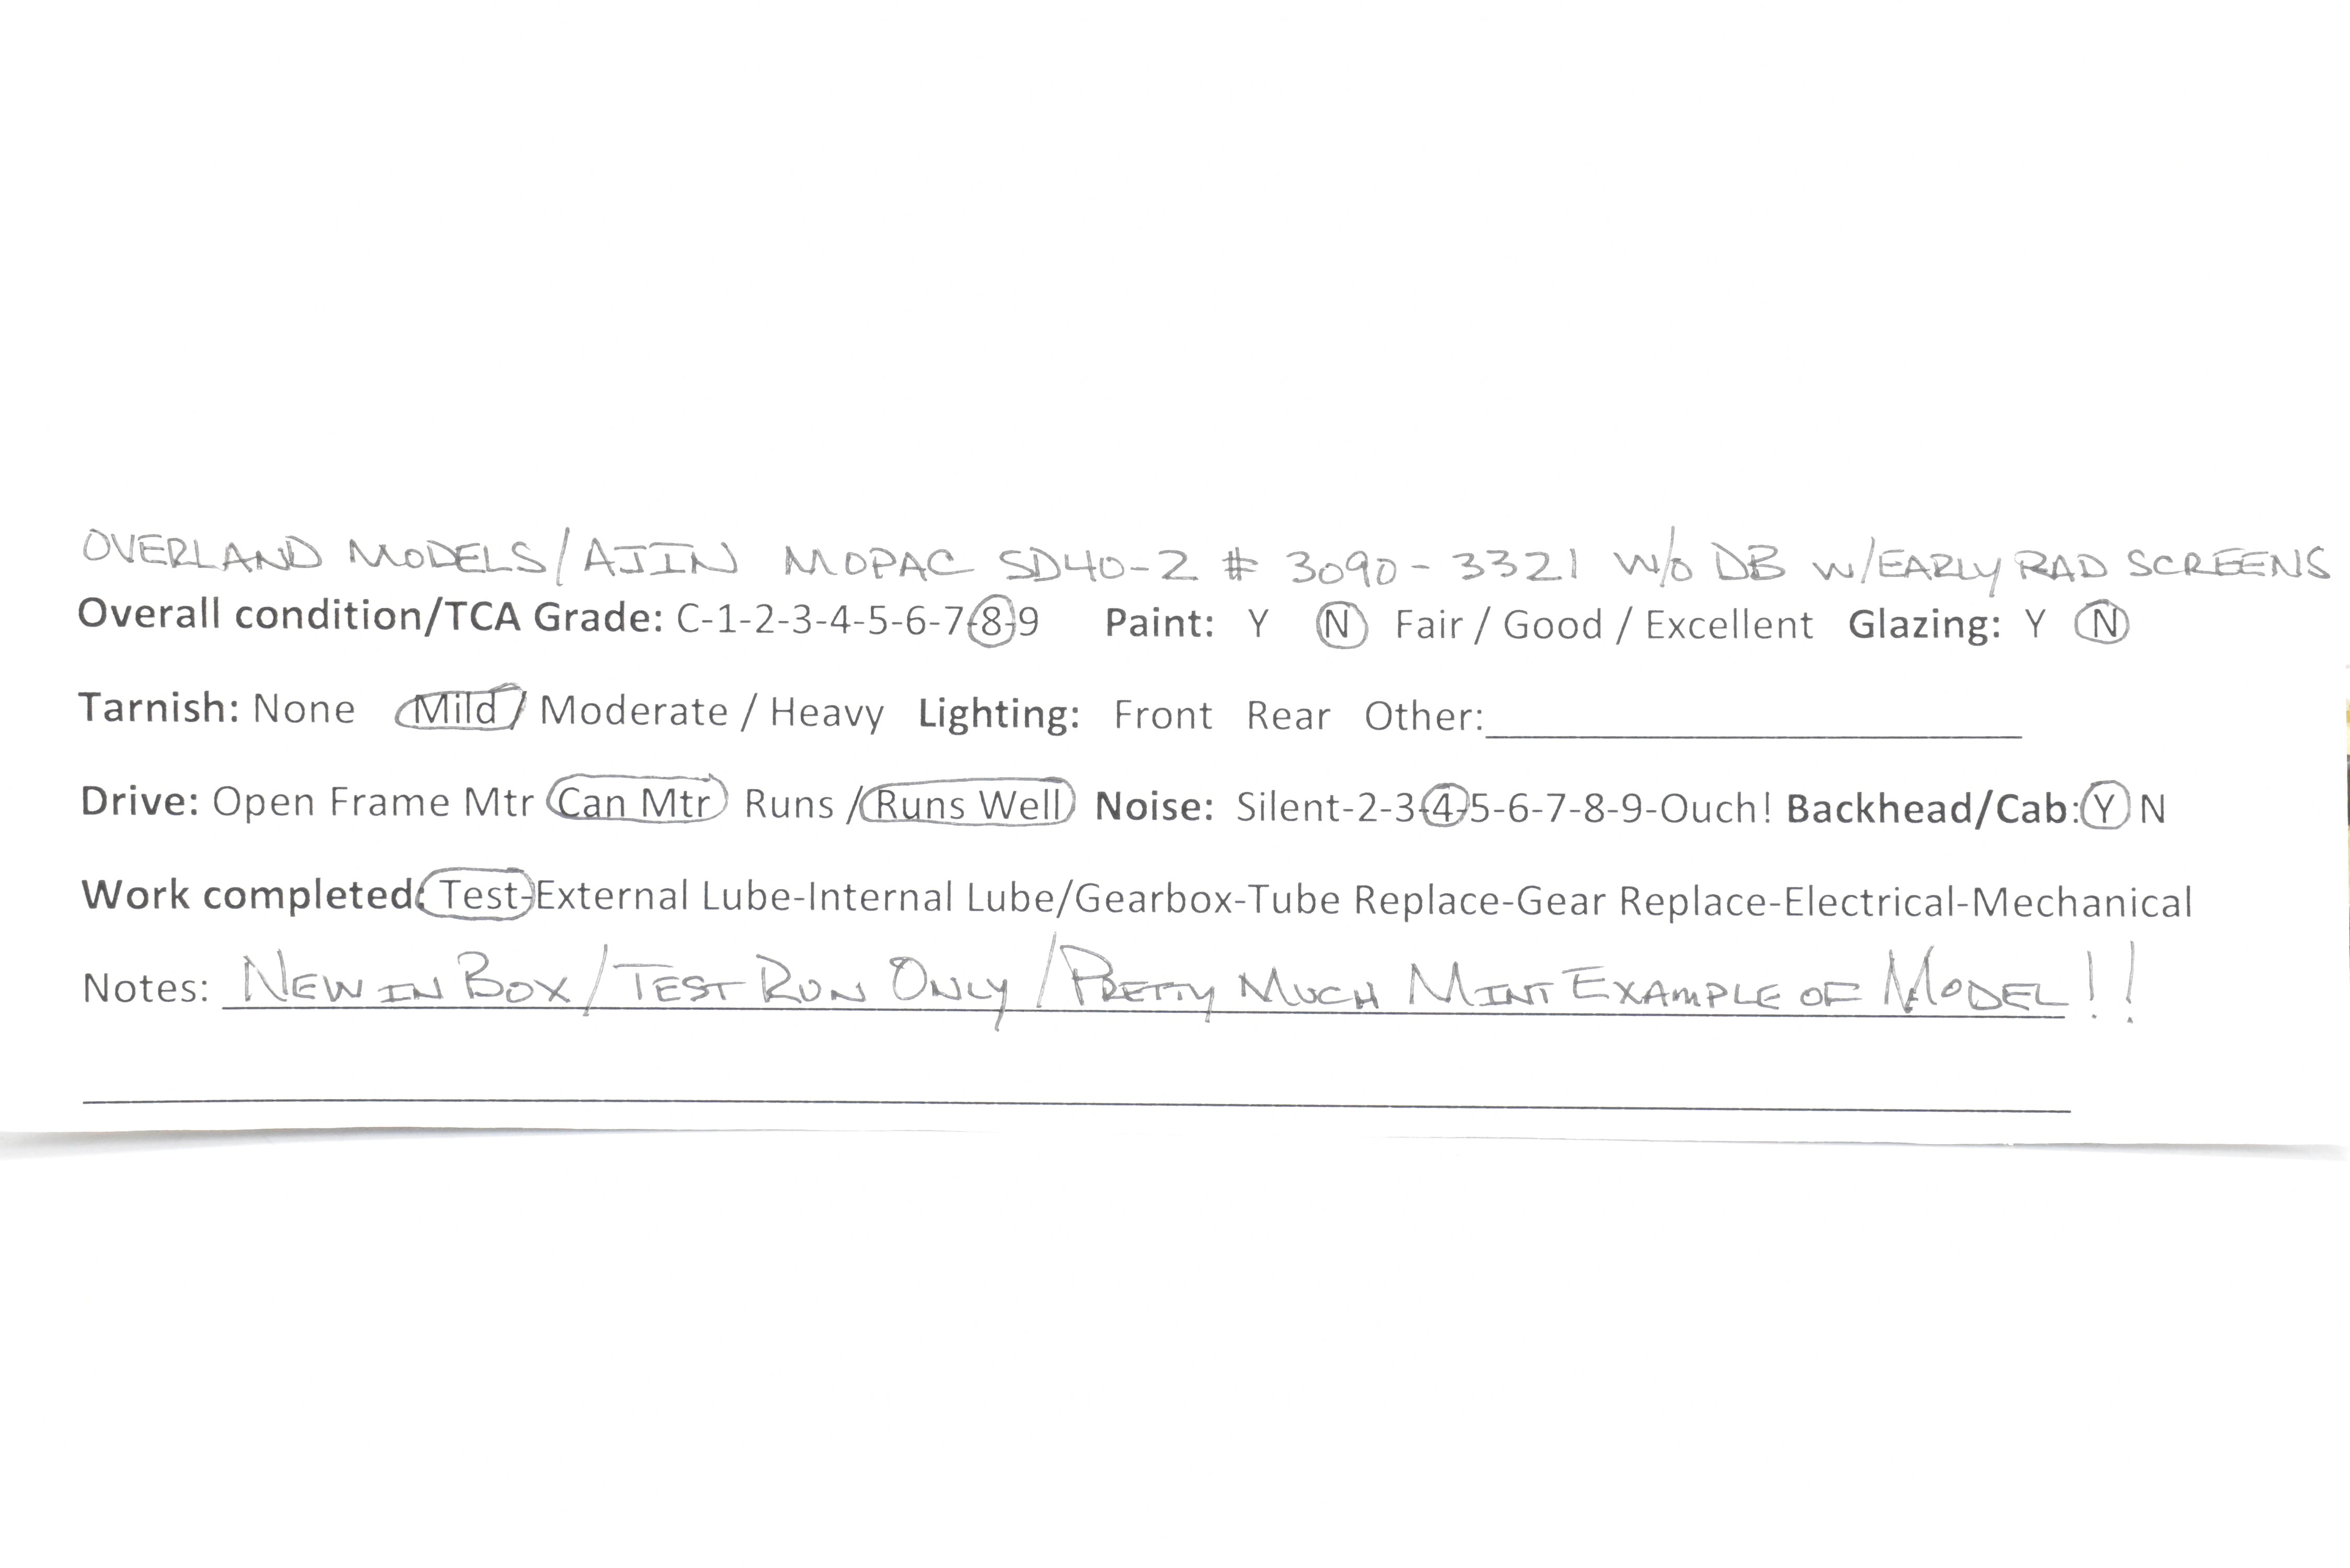 OVERLAND MODELS/AJIN MOPAC SD40-2 # 3090-3321 W/O DB W/EARLY RAD SCREENS
Overall condition/TCA Grade: C-1-2-3-4-5-6-7-8-9 Paint: Y N Fair / Good / Excellent Glazing: Y N
Tarnish: None Mild / Moderate / Heavy Lighting: Front Rear Other:
Drive: Open Frame Mtr Can Mtr Runs / Runs Well Noise: Silent-2-3-4-5-6-7-8-9-Ouch! Backhead/Cab: Y N
Work completed: Test-External Lube-Internal Lube/Gearbox-Tube Replace-Gear Replace-Electrical-Mechanical
Notes: NEW IN BOX/TEST RUN ONLY/PRETTY MUCH MINT EXAMPLE OF MODEL!!